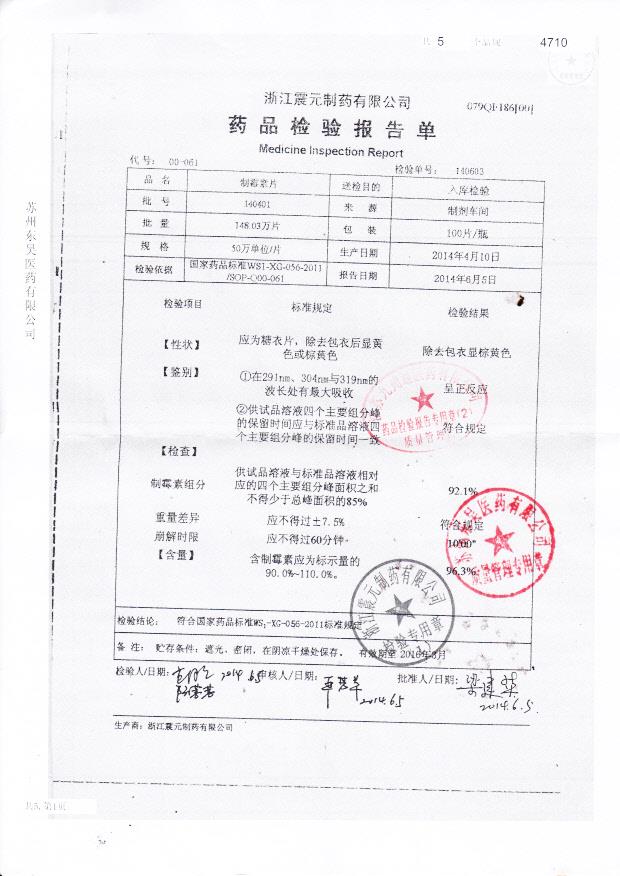 共 5
4710
浙江震元制药有限公司
079QF186[09]
药品检验报告单
Medicine Inspection Report
代号: 00-061
检验单号: 140603
品名 制霉素片 送检目的 入库检验
批号 140401 来源 制剂车间
批量 148.03万片 包装 100片/瓶
规格 50万单位/片 生产日期 2014年4月10日
检验依据 国家药品标准WS1-XG-056-2011 报告日期 2014年6月5日
/SOP-Q00-061
检验项目 标准规定 检验结果
【性状】 应为糖衣片，除去包衣后显黄 除去包衣显棕黄色
色或棕黄色
【鉴别】 ①在291nm、304nm与319nm的 呈正反应
波长处有最大吸收
②供试品溶液四个主要组分峰
的保留时间应与标准品溶液四 符合规定
个主要组分峰的保留时间一致
【检查】
制霉素组分 供试品溶液与标准品溶液相对 92.1%
应的四个主要组分峰面积之和
不得少于总峰面积的85%
重量差异 应不得过±7.5% 符合规定
崩解时限 应不得过60分钟 10'00"
【含量】 含制霉素应为标示量的 96.3%
90.0%~110.0%。
药品检验报告专用章(2)
质量管理
医药有限公司
质量管理专用章
浙江震元制药有限公司
检验专用章
检验结论: 符合国家药品标准WS1-XG-056-2011标准规定
备注: 贮存条件: 遮光，密闭，在阴凉干燥处保存。 有效期至 2016年3月
检验人/日期: 2014.6.5 审核人/日期: 2014.6.5 批准人/日期: 2014.6.5
生产商: 浙江震元制药有限公司
苏州东吴医药有限公司
共5, 第1页